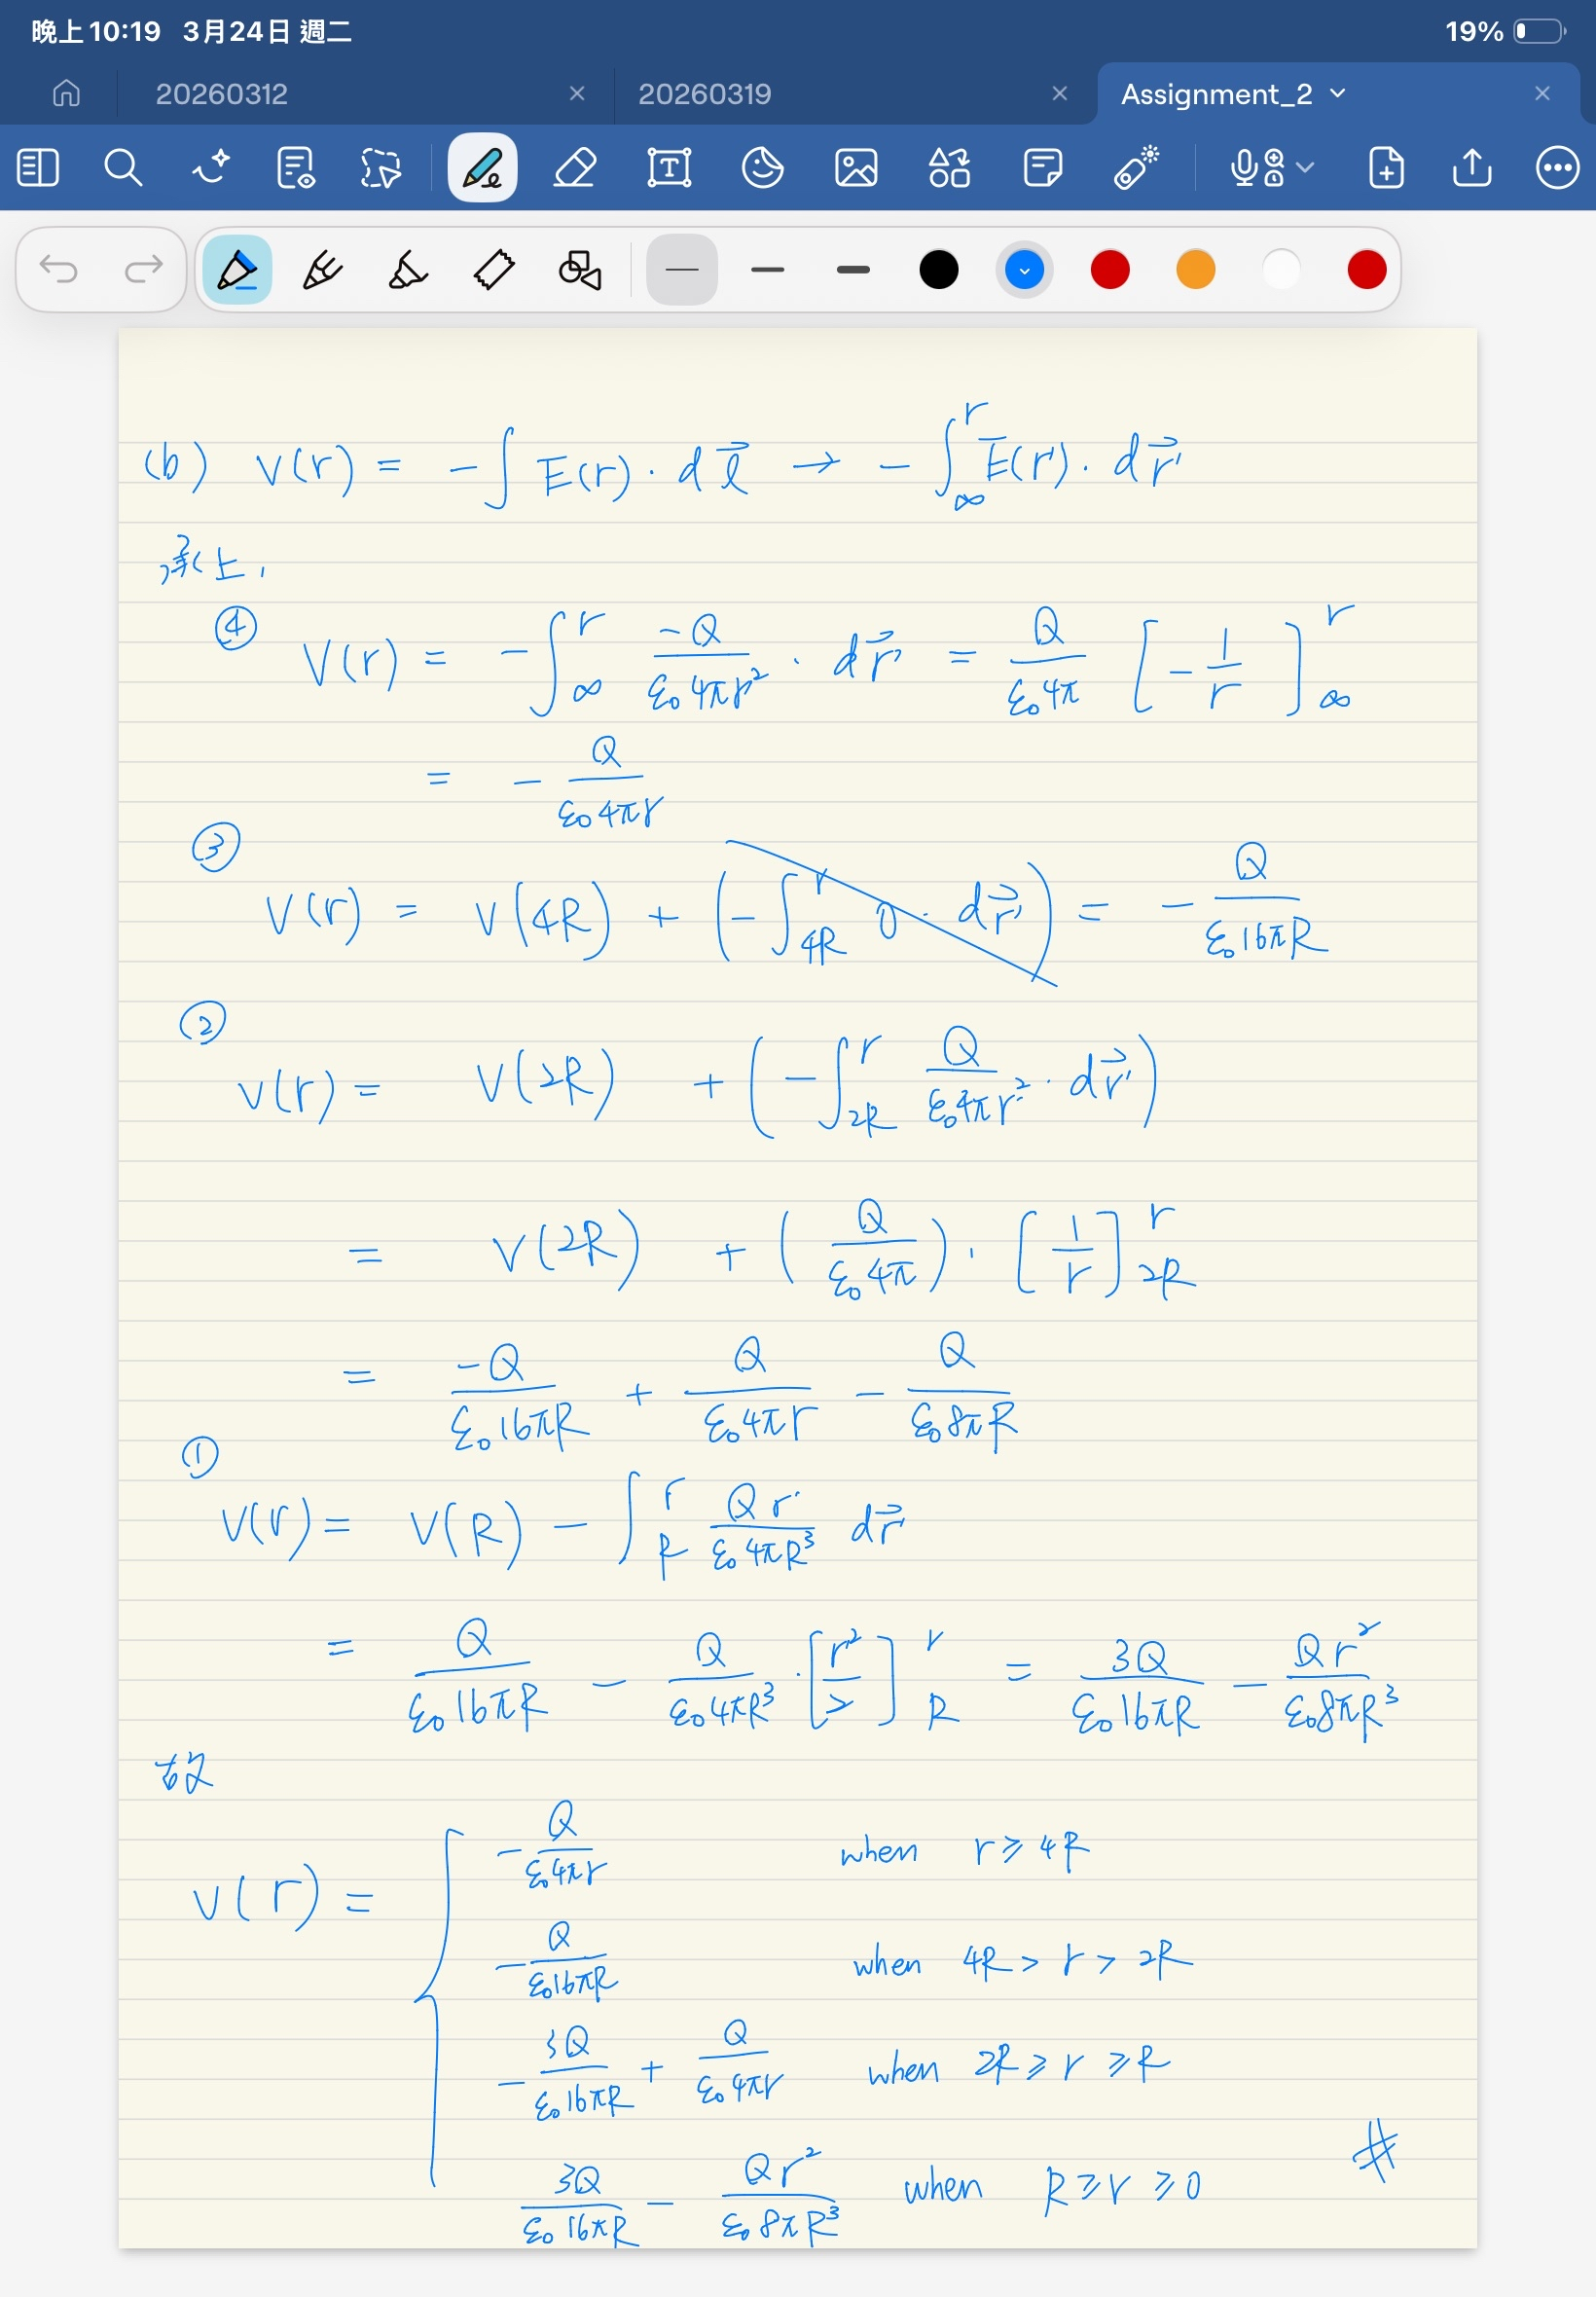 晚上10:19 3月24日 週二 19%
20260312 × 20260319 × Assignment_2 ×
(b) V(r) = -∫ E(r)·dℓ⃗ → -∫_∞^r E(r')·dr⃗'
承上,
④ V(r) = -∫_∞^r -Q/(ε₀4πr'²) · dr⃗' = Q/(ε₀4π) [-1/r]_∞^r
= - Q/(ε₀4πr)
③
V(r) = V(4R) + (-∫_{4R}^r 0·dr⃗') = - Q/(ε₀16πR)
②
V(r) = V(2R) + (-∫_{2R}^r Q/(ε₀4πr'²)·dr⃗')
= V(2R) + (Q/(ε₀4π))·[1/r]_{2R}^r
= -Q/(ε₀16πR) + Q/(ε₀4πr) - Q/(ε₀8πR)
①
V(r) = V(R) - ∫_R^r Qr'/(ε₀4πR³) dr⃗'
= Q/(ε₀16πR) - Q/(ε₀4πR³)·[r²/2]_R^r = 3Q/(ε₀16πR) - Qr²/(ε₀8πR³)
故
V(r) = { -Q/(ε₀4πr) when r ≥ 4R
-Q/(ε₀16πR) when 4R > r > 2R
-3Q/(ε₀16πR) + Q/(ε₀4πr) when 2R ≥ r ≥ R
3Q/(ε₀16πR) - Qr²/(ε₀8πR³) when R ≥ r ≥ 0 #